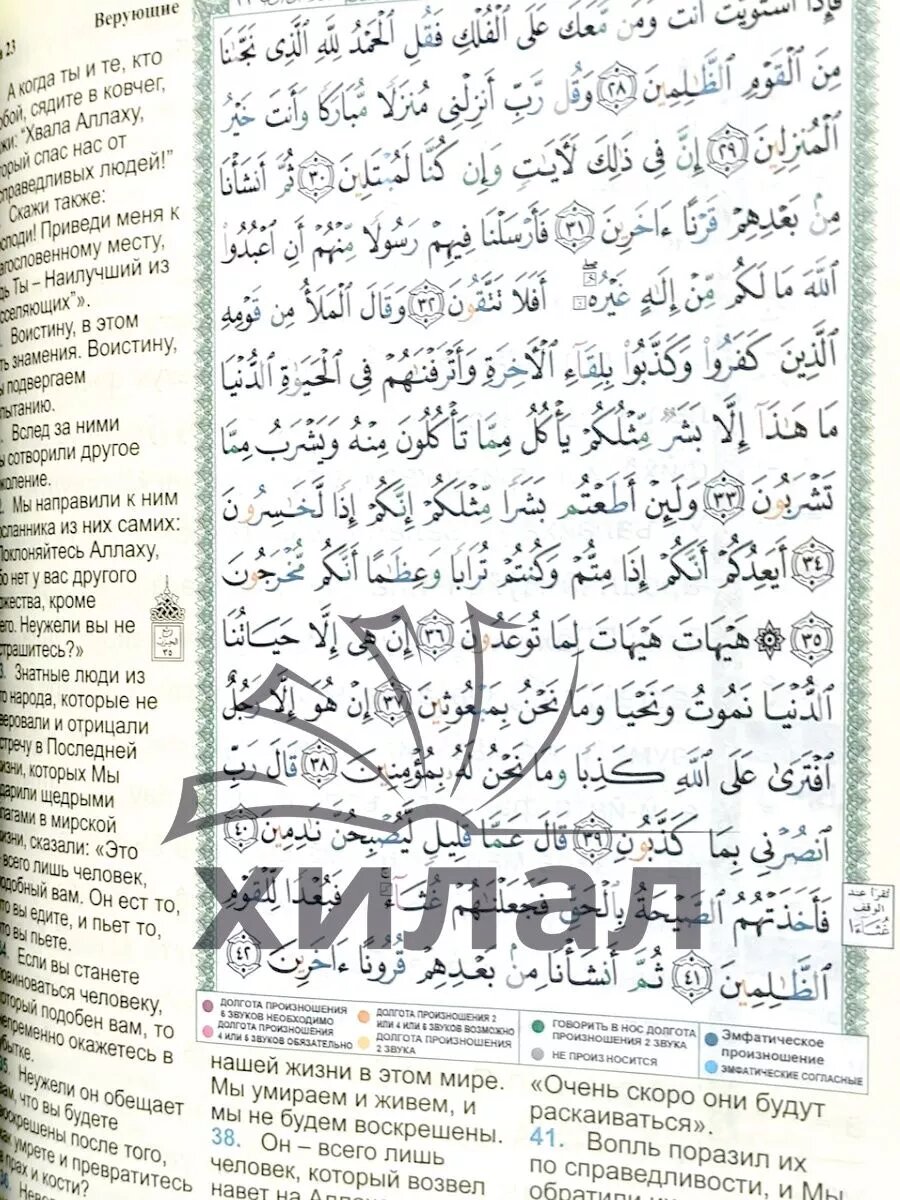 Верующие
А когда ты и те, кто
сядите в ковчег,
“Хвала Аллаху,
спас нас от
людей!”
Скажи также:
Приведи меня к
месту,
Ты – Наилучший из
Воистину, в этом
знамения. Воистину,
подвергаем
Вслед за ними
сотворили другое
Мы направили к ним
из них самих:
Аллаху,
нет у вас другого
кроме
Неужели вы не
Знатные люди из
народа, которые не
и отрицали
в Последней
которых Мы
щедрыми
в мирской
сказали: «Это
всего лишь человек,
вам. Он ест то,
вы едите, и пьет то,
вы пьете.
Если вы станете
человеку,
подобен вам, то
окажетесь в
Неужели он обещает
что вы будете
после того,
умрете и превратитесь
прах и кости?
فَإِذَا ٱسْتَوَيْتَ أَنتَ وَمَن مَّعَكَ عَلَى ٱلْفُلْكِ فَقُلِ ٱلْحَمْدُ لِلَّهِ ٱلَّذِى نَجَّىٰنَا
مِنَ ٱلْقَوْمِ ٱلظَّـٰلِمِينَ ٢٨ وَقُل رَّبِّ أَنزِلْنِى مُنزَلًا مُّبَارَكًا وَأَنتَ خَيْرُ
ٱلْمُنزِلِينَ ٢٩ إِنَّ فِى ذَٰلِكَ لَـَٔايَـٰتٍ وَإِن كُنَّا لَمُبْتَلِينَ ٣٠ ثُمَّ أَنشَأْنَا
مِنۢ بَعْدِهِمْ قَرْنًا ءَاخَرِينَ ٣١ فَأَرْسَلْنَا فِيهِمْ رَسُولًا مِّنْهُمْ أَنِ ٱعْبُدُوا۟
ٱللَّهَ مَا لَكُم مِّنْ إِلَـٰهٍ غَيْرُهُۥٓ أَفَلَا تَتَّقُونَ ٣٢ وَقَالَ ٱلْمَلَأُ مِن قَوْمِهِ
ٱلَّذِينَ كَفَرُوا۟ وَكَذَّبُوا۟ بِلِقَآءِ ٱلْـَٔاخِرَةِ وَأَتْرَفْنَـٰهُمْ فِى ٱلْحَيَوٰةِ ٱلدُّنْيَا
مَا هَـٰذَآ إِلَّا بَشَرٌ مِّثْلُكُمْ يَأْكُلُ مِمَّا تَأْكُلُونَ مِنْهُ وَيَشْرَبُ مِمَّا
تَشْرَبُونَ ٣٣ وَلَئِنْ أَطَعْتُم بَشَرًا مِّثْلَكُمْ إِنَّكُمْ إِذًا لَّخَـٰسِرُونَ
٣٤ أَيَعِدُكُمْ أَنَّكُمْ إِذَا مِتُّمْ وَكُنتُمْ تُرَابًا وَعِظَـٰمًا أَنَّكُم مُّخْرَجُونَ
٣٥ ۞ هَيْهَاتَ هَيْهَاتَ لِمَا تُوعَدُونَ ٣٦ إِنْ هِىَ إِلَّا حَيَاتُنَا
ٱلدُّنْيَا نَمُوتُ وَنَحْيَا وَمَا نَحْنُ بِمَبْعُوثِينَ ٣٧ إِنْ هُوَ إِلَّا رَجُلٌ
ٱفْتَرَىٰ عَلَى ٱللَّهِ كَذِبًا وَمَا نَحْنُ لَهُۥ بِمُؤْمِنِينَ ٣٨ قَالَ رَبِّ
ٱنصُرْنِى بِمَا كَذَّبُونِ ٣٩ قَالَ عَمَّا قَلِيلٍ لَّيُصْبِحُنَّ نَـٰدِمِينَ ٤٠
فَأَخَذَتْهُمُ ٱلصَّيْحَةُ بِٱلْحَقِّ فَجَعَلْنَـٰهُمْ غُثَآءً فَبُعْدًا لِّلْقَوْمِ
ٱلظَّـٰلِمِينَ ٤١ ثُمَّ أَنشَأْنَا مِنۢ بَعْدِهِمْ قُرُونًا ءَاخَرِينَ ٤٢
تُقرَأ عند
الوقف
غُثَاءَا
хилал
ДОЛГОТА ПРОИЗНОШЕНИЯ
6 ЗВУКОВ НЕОБХОДИМО
ДОЛГОТА ПРОИЗНОШЕНИЯ
4 ИЛИ 5 ЗВУКОВ ОБЯЗАТЕЛЬНО
ДОЛГОТА ПРОИЗНОШЕНИЯ 2
ИЛИ 4 ИЛИ 6 ЗВУКОВ ВОЗМОЖНО
ДОЛГОТА ПРОИЗНОШЕНИЯ
2 ЗВУКА
ГОВОРИТЬ В НОС ДОЛГОТА
ПРОИЗНОШЕНИЯ 2 ЗВУКА
НЕ ПРОИЗНОСИТСЯ
Эмфатическое
произношение
ЭМФАТИЧЕСКИЕ СОГЛАСНЫЕ
нашей жизни в этом мире.
Мы умираем и живем, и
мы не будем воскрешены.
38. Он – всего лишь
человек, который возвел
навет на Аллаха
«Очень скоро они будут
раскаиваться».
41. Вопль поразил их
по справедливости, и Мы
обратили их